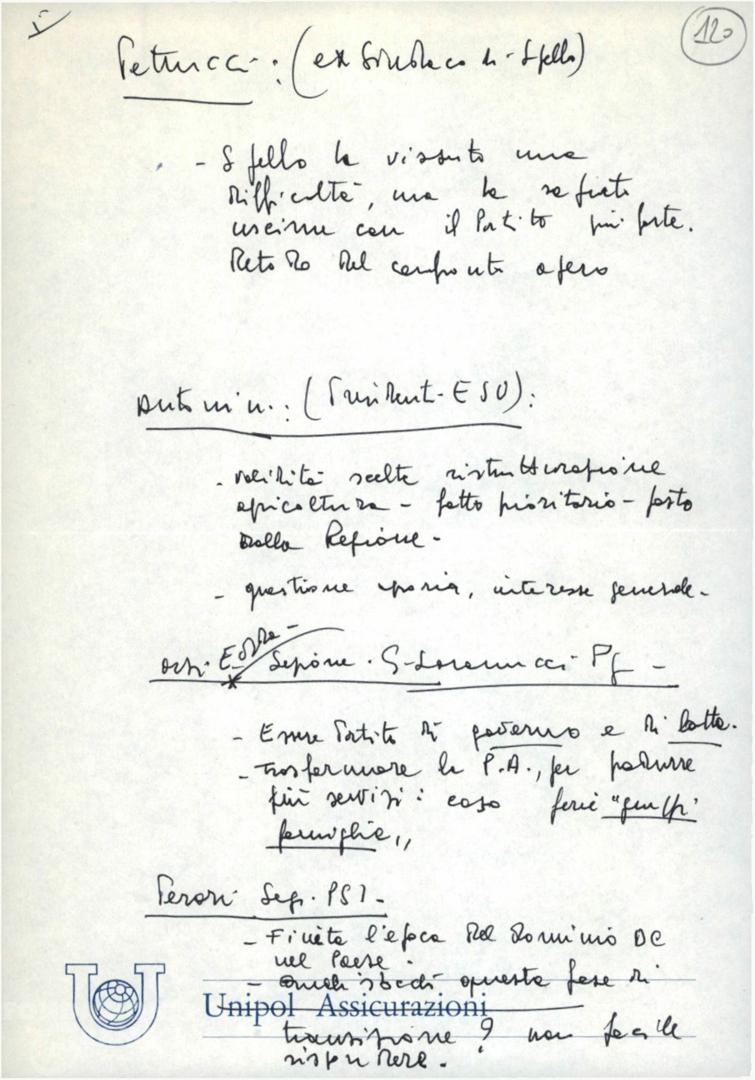 120
Petrucci: (ex Sindaco di Spello)
- Spello ha vissuto una
difficoltà, ma ha saputo
uscirne con il Partito più forte.
Metodo del confronto aperto
Antonini: (President. ESU):
- validità scelte ristrutturazione
agricoltura - fatto prioritario - posto
dalla Regione -
- questione , interesse generale -
Sezione G. Pg -
- Essere Partito di governo e di lotta.
- trasformare la P.A., per produrre
più servizi: caso ferie "gruppi
famiglia„
Segr. PSI -
- Finita l'epoca del dominio DC
nel Paese.
- Quali sbocchi questa fase di
Unipol Assicurazioni
transizione? non facile
rispondere.